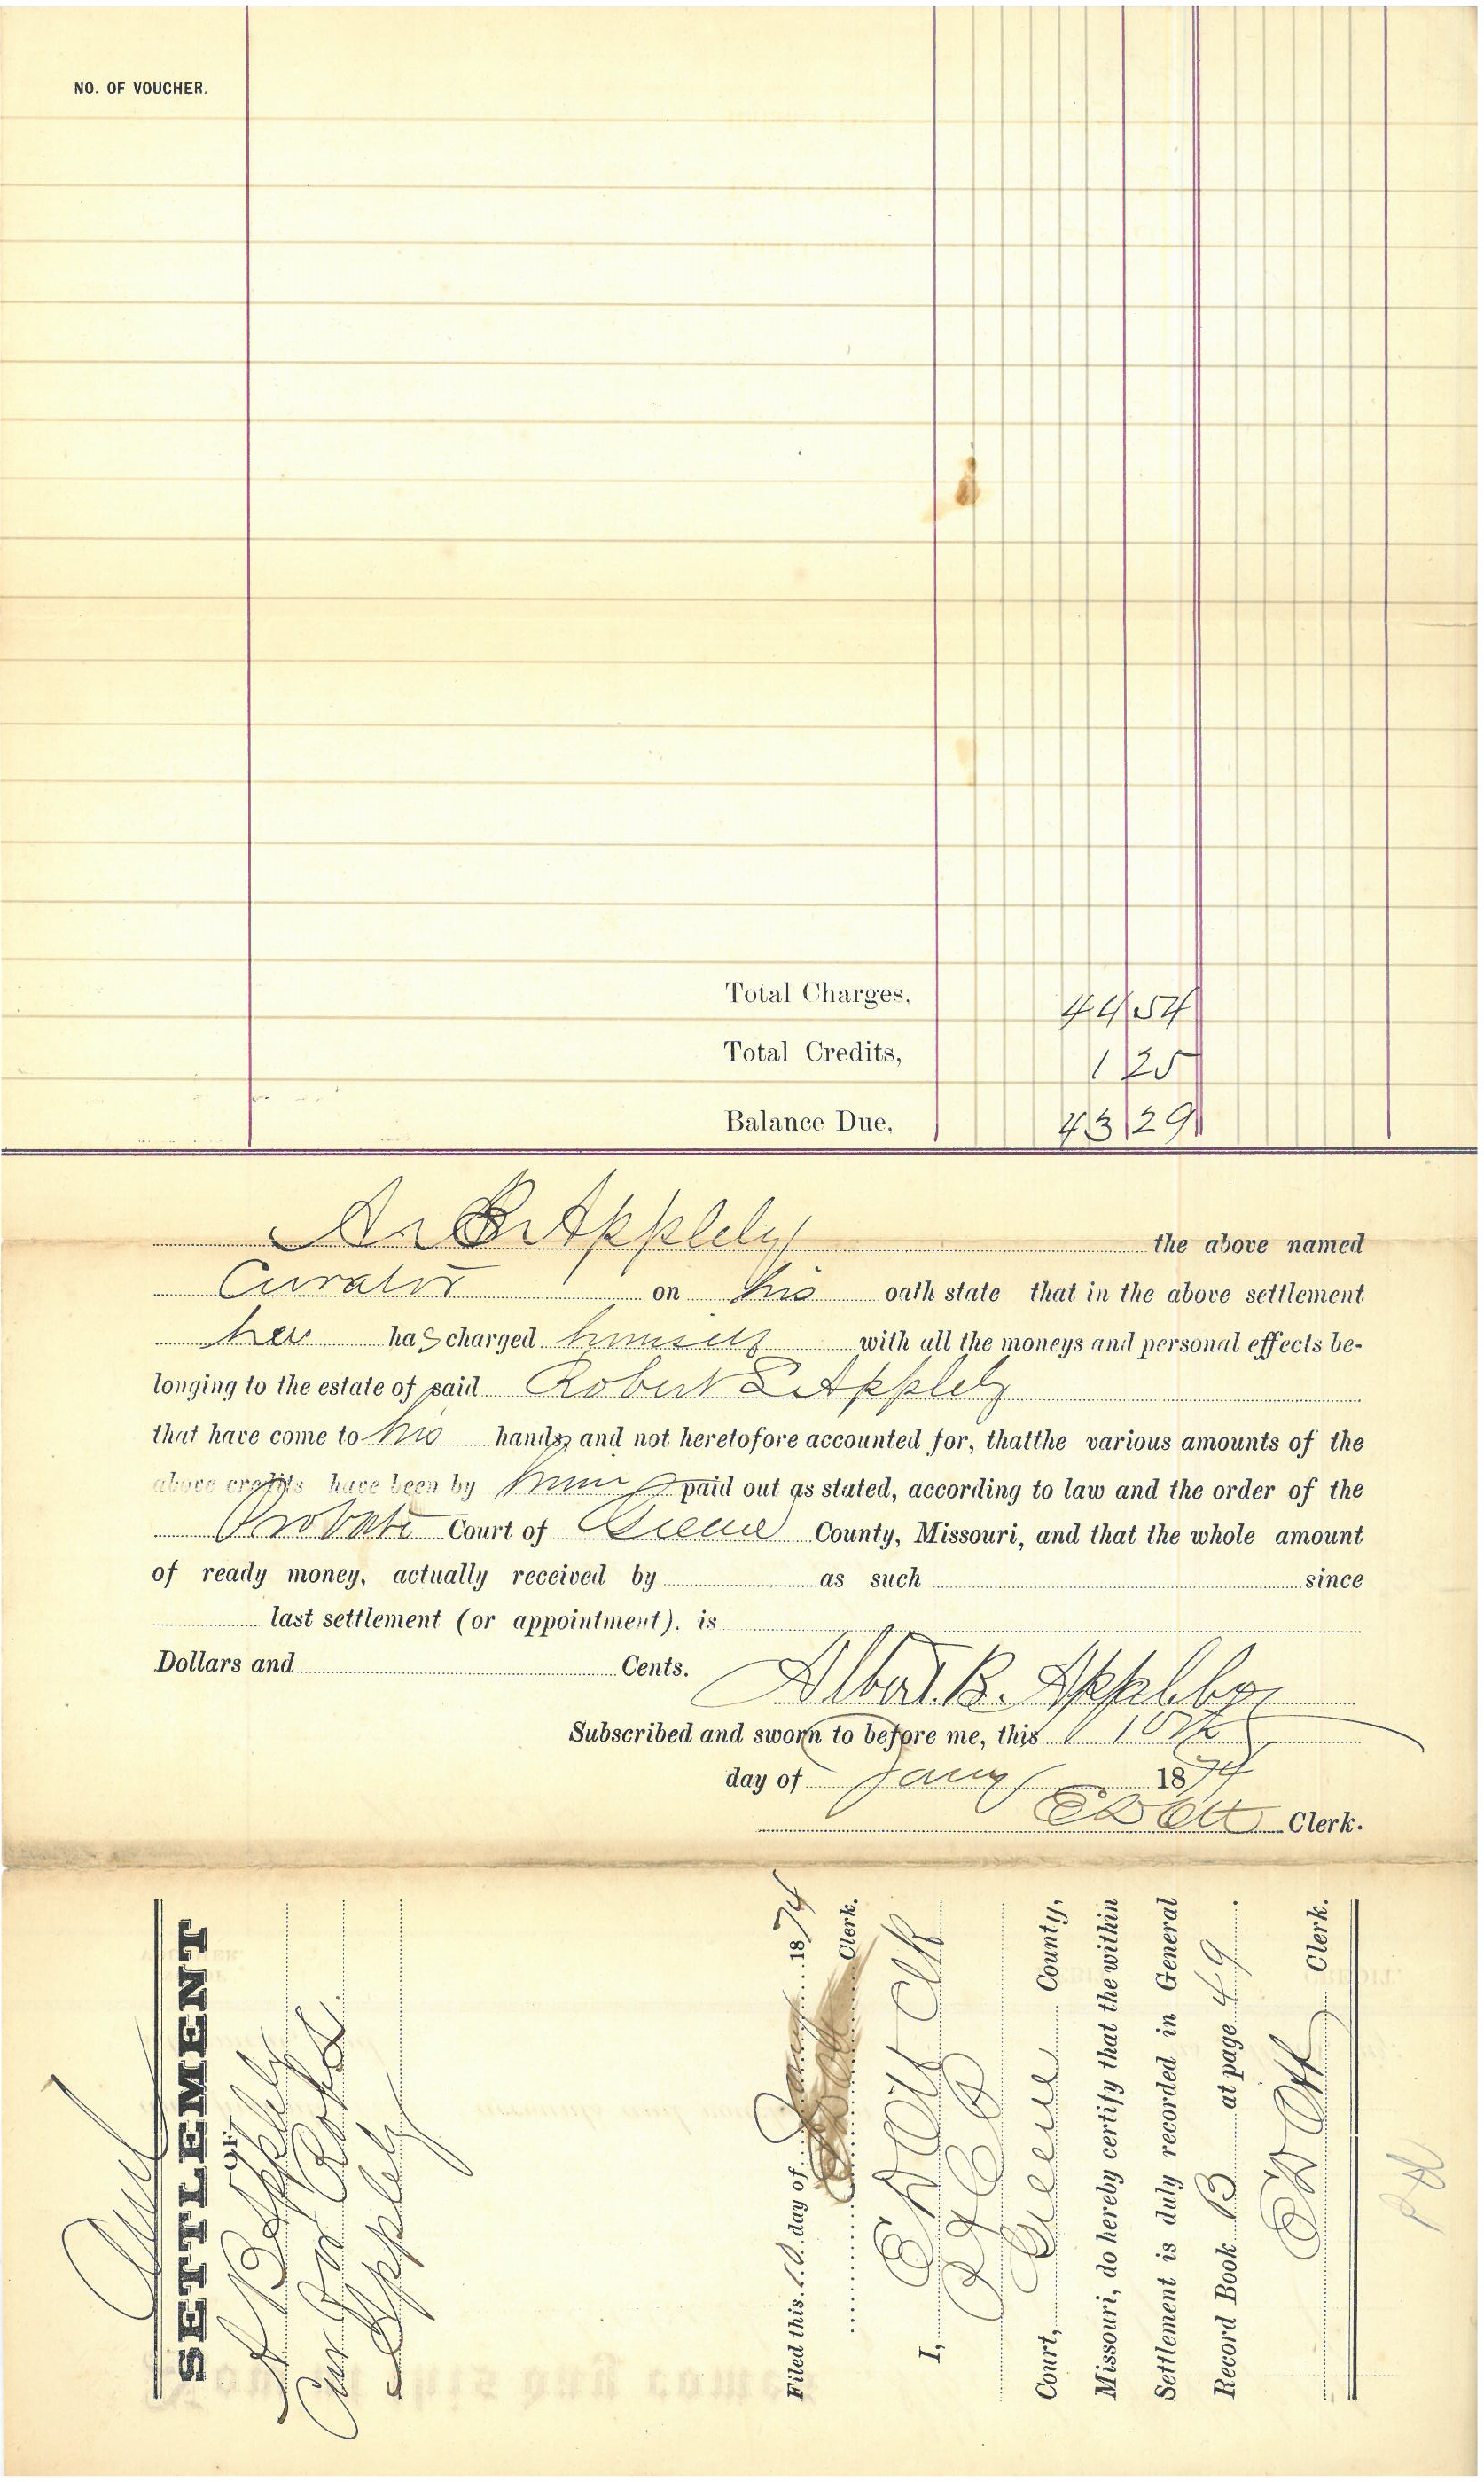 NO. OF VOUCHER.
Total Charges, 44 54
Total Credits, 1 25
Balance Due, 43 29
A. B. Appleby the above named
Curator on his oath state that in the above settlement
he has charged himself with all the moneys and personal effects be-
longing to the estate of said Robert L. Appleby
that have come to his hands, and not heretofore accounted for, thatthe various amounts of the
above credits have been by him paid out as stated, according to law and the order of the
Probate Court of Greene County, Missouri, and that the whole amount
of ready money, actually received by as such since
last settlement (or appointment), is
Dollars and Cents. Albert. B. Appleby
Subscribed and sworn to before me, this 10th
day of Jany 1874
E D Ott Clerk.
SETTLEMENT
OF
A B Appleby
Cur Robt
Appleby
Filed this 10 day of Jany 1874
Clerk.
I, E D Ott Clk
Court, Greene County,
Missouri, do hereby certify that the within
Settlement is duly recorded in General
Record Book B at page 49.
E D Ott Clerk.